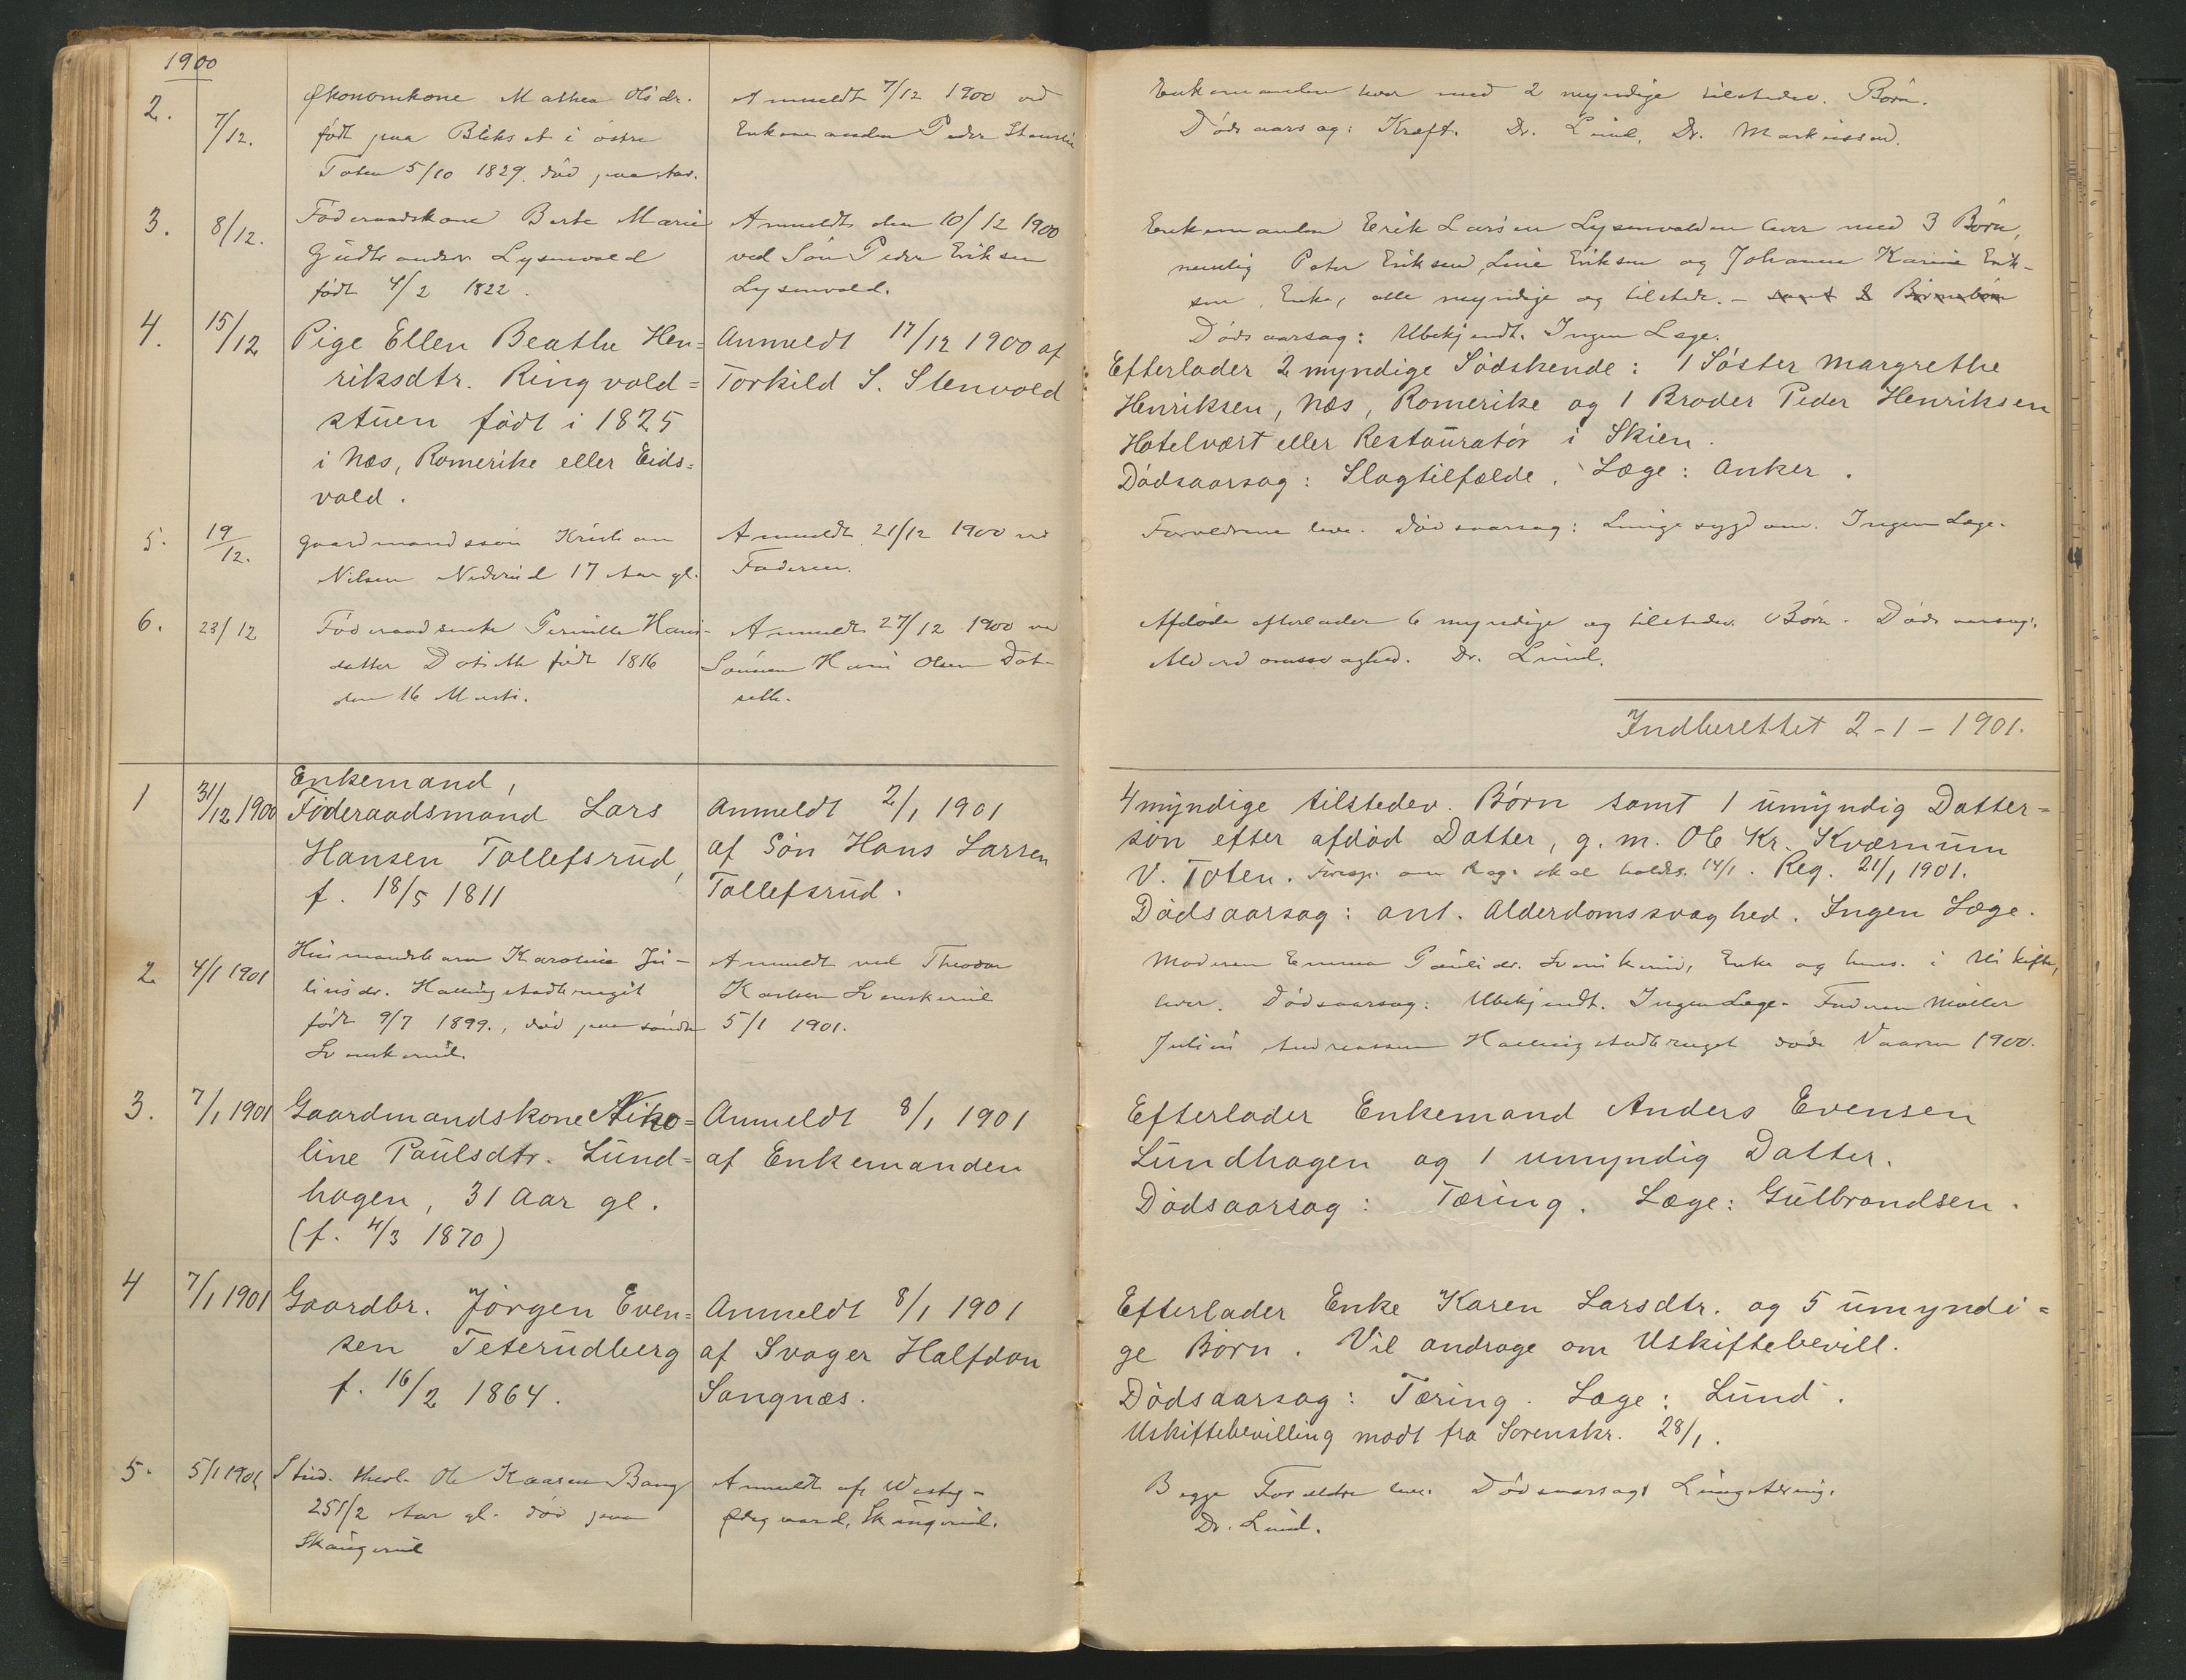 1900
2.
7/12.
Økonomkone Mathea Olsdr.
født paa Blikset i østre
Toten 5/10 1829. død paa
Anmeldt 7/12 1900 ved
Enkemanden Peder
Enkemanden lever med 2 myndige tilstedev. Børn.
Dødsaarsag: Kræft. Dr. Lund, Dr.
3.
8/12.
Føderaadskone Berte Marie
Lysenvold
født 4/2 1822.
Anmeldt den 10/12 1900
ved Søn Peder Eriksen
Lysenvold.
Enkemanden Erik Larsen Lysenvolden lever med 3 Børn,
nemlig Peter Eriksen, Line Eriksen og Johanne Karine Erik-
sen, Enke, alle myndige og tilstede. - samt 2 Børnebørn
Dødsaarsag: Ubekjendt. Ingen Læge.
4.
15/12
Pige Ellen Beathe Hen=
riksdtr. Ringvold=
stuen født i 1825
i Næs, Romerike eller Eids=
vold.
Anmeldt 17/12 1900 af
Torkild S. Stenvold
Efterlader 2 myndige Södskende: 1 Söster Margrethe
Henriksen, Næs, Romerike og 1 Broder Peder Henriksen
Hotelvært eller Restauratör i Skien.
Dödsaarsag: Slagtilfælde. Læge: Anker.
5.
19/12.
Gaardmandssøn Kristian
Nilsen Nederud 17 Aar gl.
Anmeldt 21/12 1900 ved
Faderen.
Forældrene lever. Dødsaarsag: Lungesygdom. Ingen Læge.
6.
23/12
Føderaadsenke Pernille Hans-
datter født 1816
den 16 Marts.
Anmeldt 27/12 1900 ved
Sønnen Hans Olsen Dot-
seth.
Afdøde efterlader 6 myndige og tilstedev. Børn. Dødsaarsag:
Alderdomssvaghed. Dr. Lund.
Indberettet 2-1-1901.
1
31/12 1900
Enkemand,
Föderaadsmand Lars
Hansen Tollefsrud,
f. 18/5 1811
Anmeldt 2/1 1901
af Sön Hans Larsen
Tollefsrud.
4 myndige tilstedev. Börn samt 1 umyndig Datter=
sön efter afdöd Datter, g. m. Ole Kr. Kværnum
V. Toten. Foresp. om Reg. skal holdes. 14/1. Reg. 21/1 1901.
Dödsaarsag: ant. Alderdomssvaghed. Ingen Læge.
2
4/1 1901
Husmandsbarn Karoline Ju-
liusdr.
født 9/7 1899., død paa søndre
Svenkerud.
Anmeldt ved Theodor
Karlsen Svenskerud
5/1 1901.
Moderen Emma Paulsdr. Enke og hens. i Uskifte,
lever. Dødsaarsag: Ubekjendt. Ingen Læge. Faderen Møller
Julius Andreassen døde Vaaren 1900.
3.
7/1 1901
Gaardmandskone Niko=
line Paulsdtr. Lund=
hagen, 31 Aar gl.
(f. 4/3 1870)
Anmeldt 8/1 1901
af Enkemanden
Efterlader Enkemand Anders Evensen
Lundhagen og 1 umyndig Datter.
Dödsaarsag: Tæring. Læge: Gulbrandsen.
4
7/1 1901
Gaardbr. Jörgen Even=
sen Teterudberg
f. 16/2 1864.
Anmeldt 8/1 1901
af Svoger Halfdan
Sangnæs.
Efterlader Enke Karen Larsdtr. og 5 umyndi=
ge Börn. Vil andrage om Uskiftebevill.
Dödsaarsag: Tæring. Læge: Lund.
Uskiftebevilling modt fra Sorenskr. 28/1.
5.
5/1 1901
Stud. theol. Ole Kaarsen Bang
25 1/2 Aar gl. død paa
Skaugerud
Anmeldt af
Ødegaard, Skaugerud.
Begge Forældre lever. Dødsaarsag: Lungetæring.
Dr. Lund.